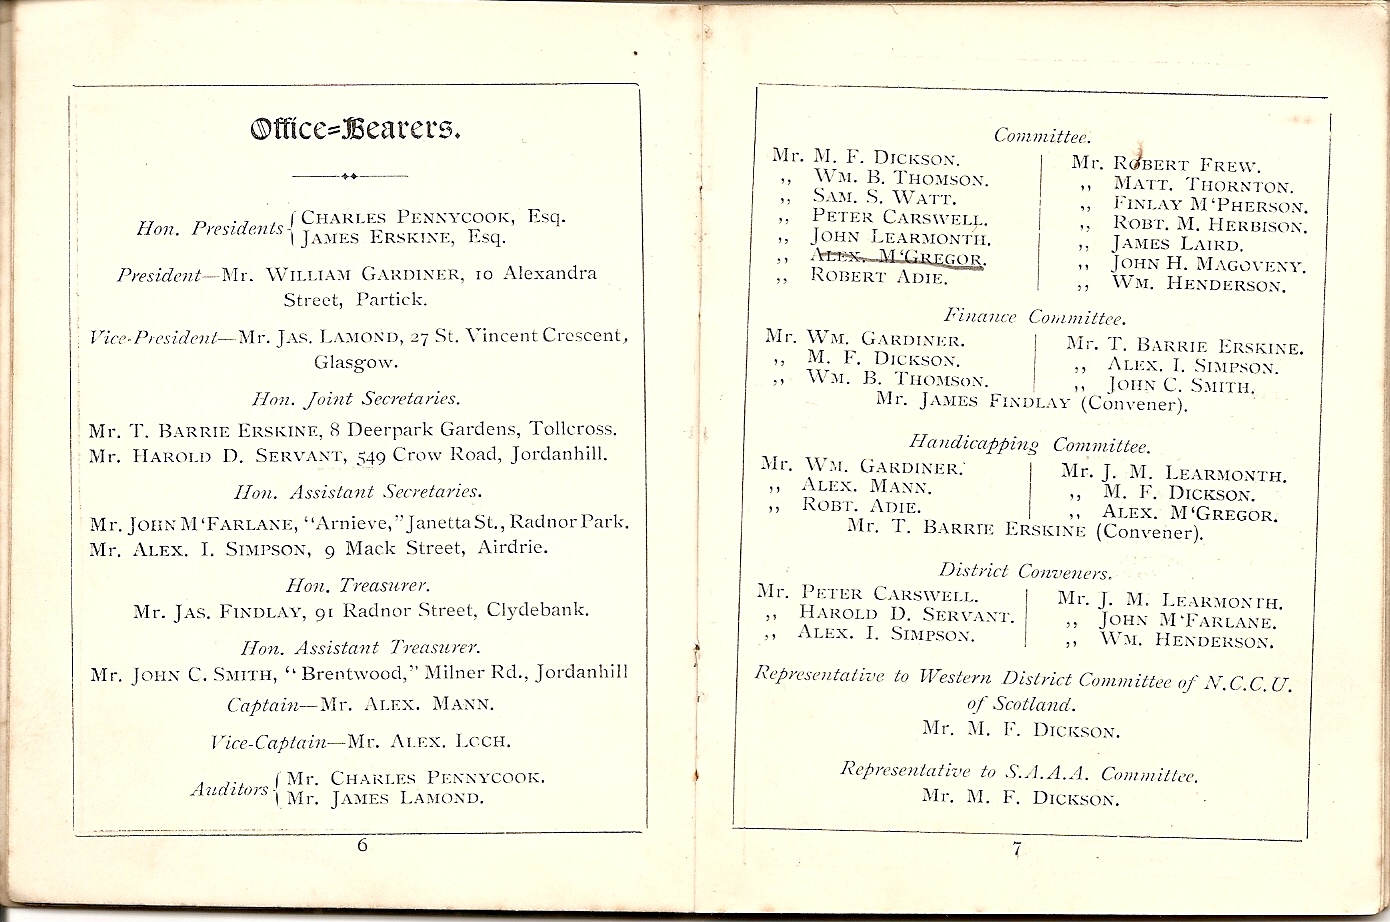 Office=Bearers.
Hon. Presidents { CHARLES PENNYCOOK, Esq.
JAMES ERSKINE, Esq.
President—Mr. WILLIAM GARDINER, 10 Alexandra
Street, Partick.
Vice-President—Mr. JAS. LAMOND, 27 St. Vincent Crescent,
Glasgow.
Hon. Joint Secretaries.
Mr. T. BARRIE ERSKINE, 8 Deerpark Gardens, Tollcross.
Mr. HAROLD D. SERVANT, 549 Crow Road, Jordanhill.
Hon. Assistant Secretaries.
Mr. JOHN M‘FARLANE, “Arnieve,” Janetta St., Radnor Park.
Mr. ALEX. I. SIMPSON, 9 Mack Street, Airdrie.
Hon. Treasurer.
Mr. JAS. FINDLAY, 91 Radnor Street, Clydebank.
Hon. Assistant Treasurer.
Mr. JOHN C. SMITH, “Brentwood,” Milner Rd., Jordanhill
Captain—Mr. ALEX. MANN.
Vice-Captain—Mr. ALEX. LOCH.
Auditors { Mr. CHARLES PENNYCOOK.
Mr. JAMES LAMOND.
6
Committee.
Mr. M. F. DICKSON.
,, WM. B. THOMSON.
,, SAM. S. WATT.
,, PETER CARSWELL.
,, JOHN LEARMONTH.
,, ALEX. M‘GREGOR.
,, ROBERT ADIE.
Mr. ROBERT FREW.
,, MATT. THORNTON.
,, FINLAY M‘PHERSON.
,, ROBT. M. HERBISON.
,, JAMES LAIRD.
,, JOHN H. MAGOVENY.
,, WM. HENDERSON.
Finance Committee.
Mr. WM. GARDINER.
,, M. F. DICKSON.
,, WM. B. THOMSON.
Mr. T. BARRIE ERSKINE.
,, ALEX. I. SIMPSON.
,, JOHN C. SMITH.
Mr. JAMES FINDLAY (Convener).
Handicapping Committee.
Mr. WM. GARDINER.
,, ALEX. MANN.
,, ROBT. ADIE.
Mr. J. M. LEARMONTH.
,, M. F. DICKSON.
,, ALEX. M‘GREGOR.
Mr. T. BARRIE ERSKINE (Convener).
District Conveners.
Mr. PETER CARSWELL.
,, HAROLD D. SERVANT.
,, ALEX. I. SIMPSON.
Mr. J. M. LEARMONTH.
,, JOHN M‘FARLANE.
,, WM. HENDERSON.
Representative to Western District Committee of N.C.C.U.
of Scotland.
Mr. M. F. DICKSON.
Representative to S.A.A.A. Committee.
Mr. M. F. DICKSON.
7